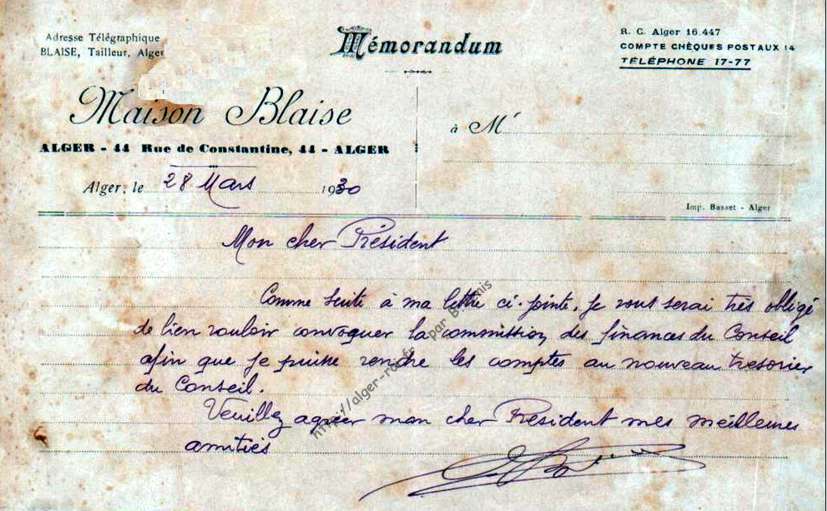 Adresse Télégraphique
BLAISE, Tailleur, Alger
Mémorandum
R. C. Alger 16.447
COMPTE CHÈQUES POSTAUX 14
TÉLÉPHONE 17-77
Maison Blaise
ALGER - 44 Rue de Constantine, 44 - ALGER
à M
Alger, le 28 Mars 1930
Imp. Basset - Alger
Mon cher Président
Comme suite à ma lettre ci-jointe, je vous serai très obligé
de bien vouloir convoquer la commission des finances du Conseil
afin que je puisse rendre les comptes au nouveau tresorier
du Conseil.
Veuillez agréer mon cher Président mes meilleures
amitiés